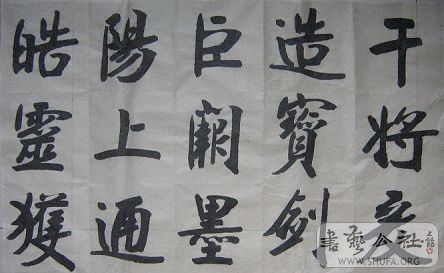 干將
造寶劍
巨闕墨
陽上通
皓靈獲
書藝公社
WWW.SHUFA.ORG